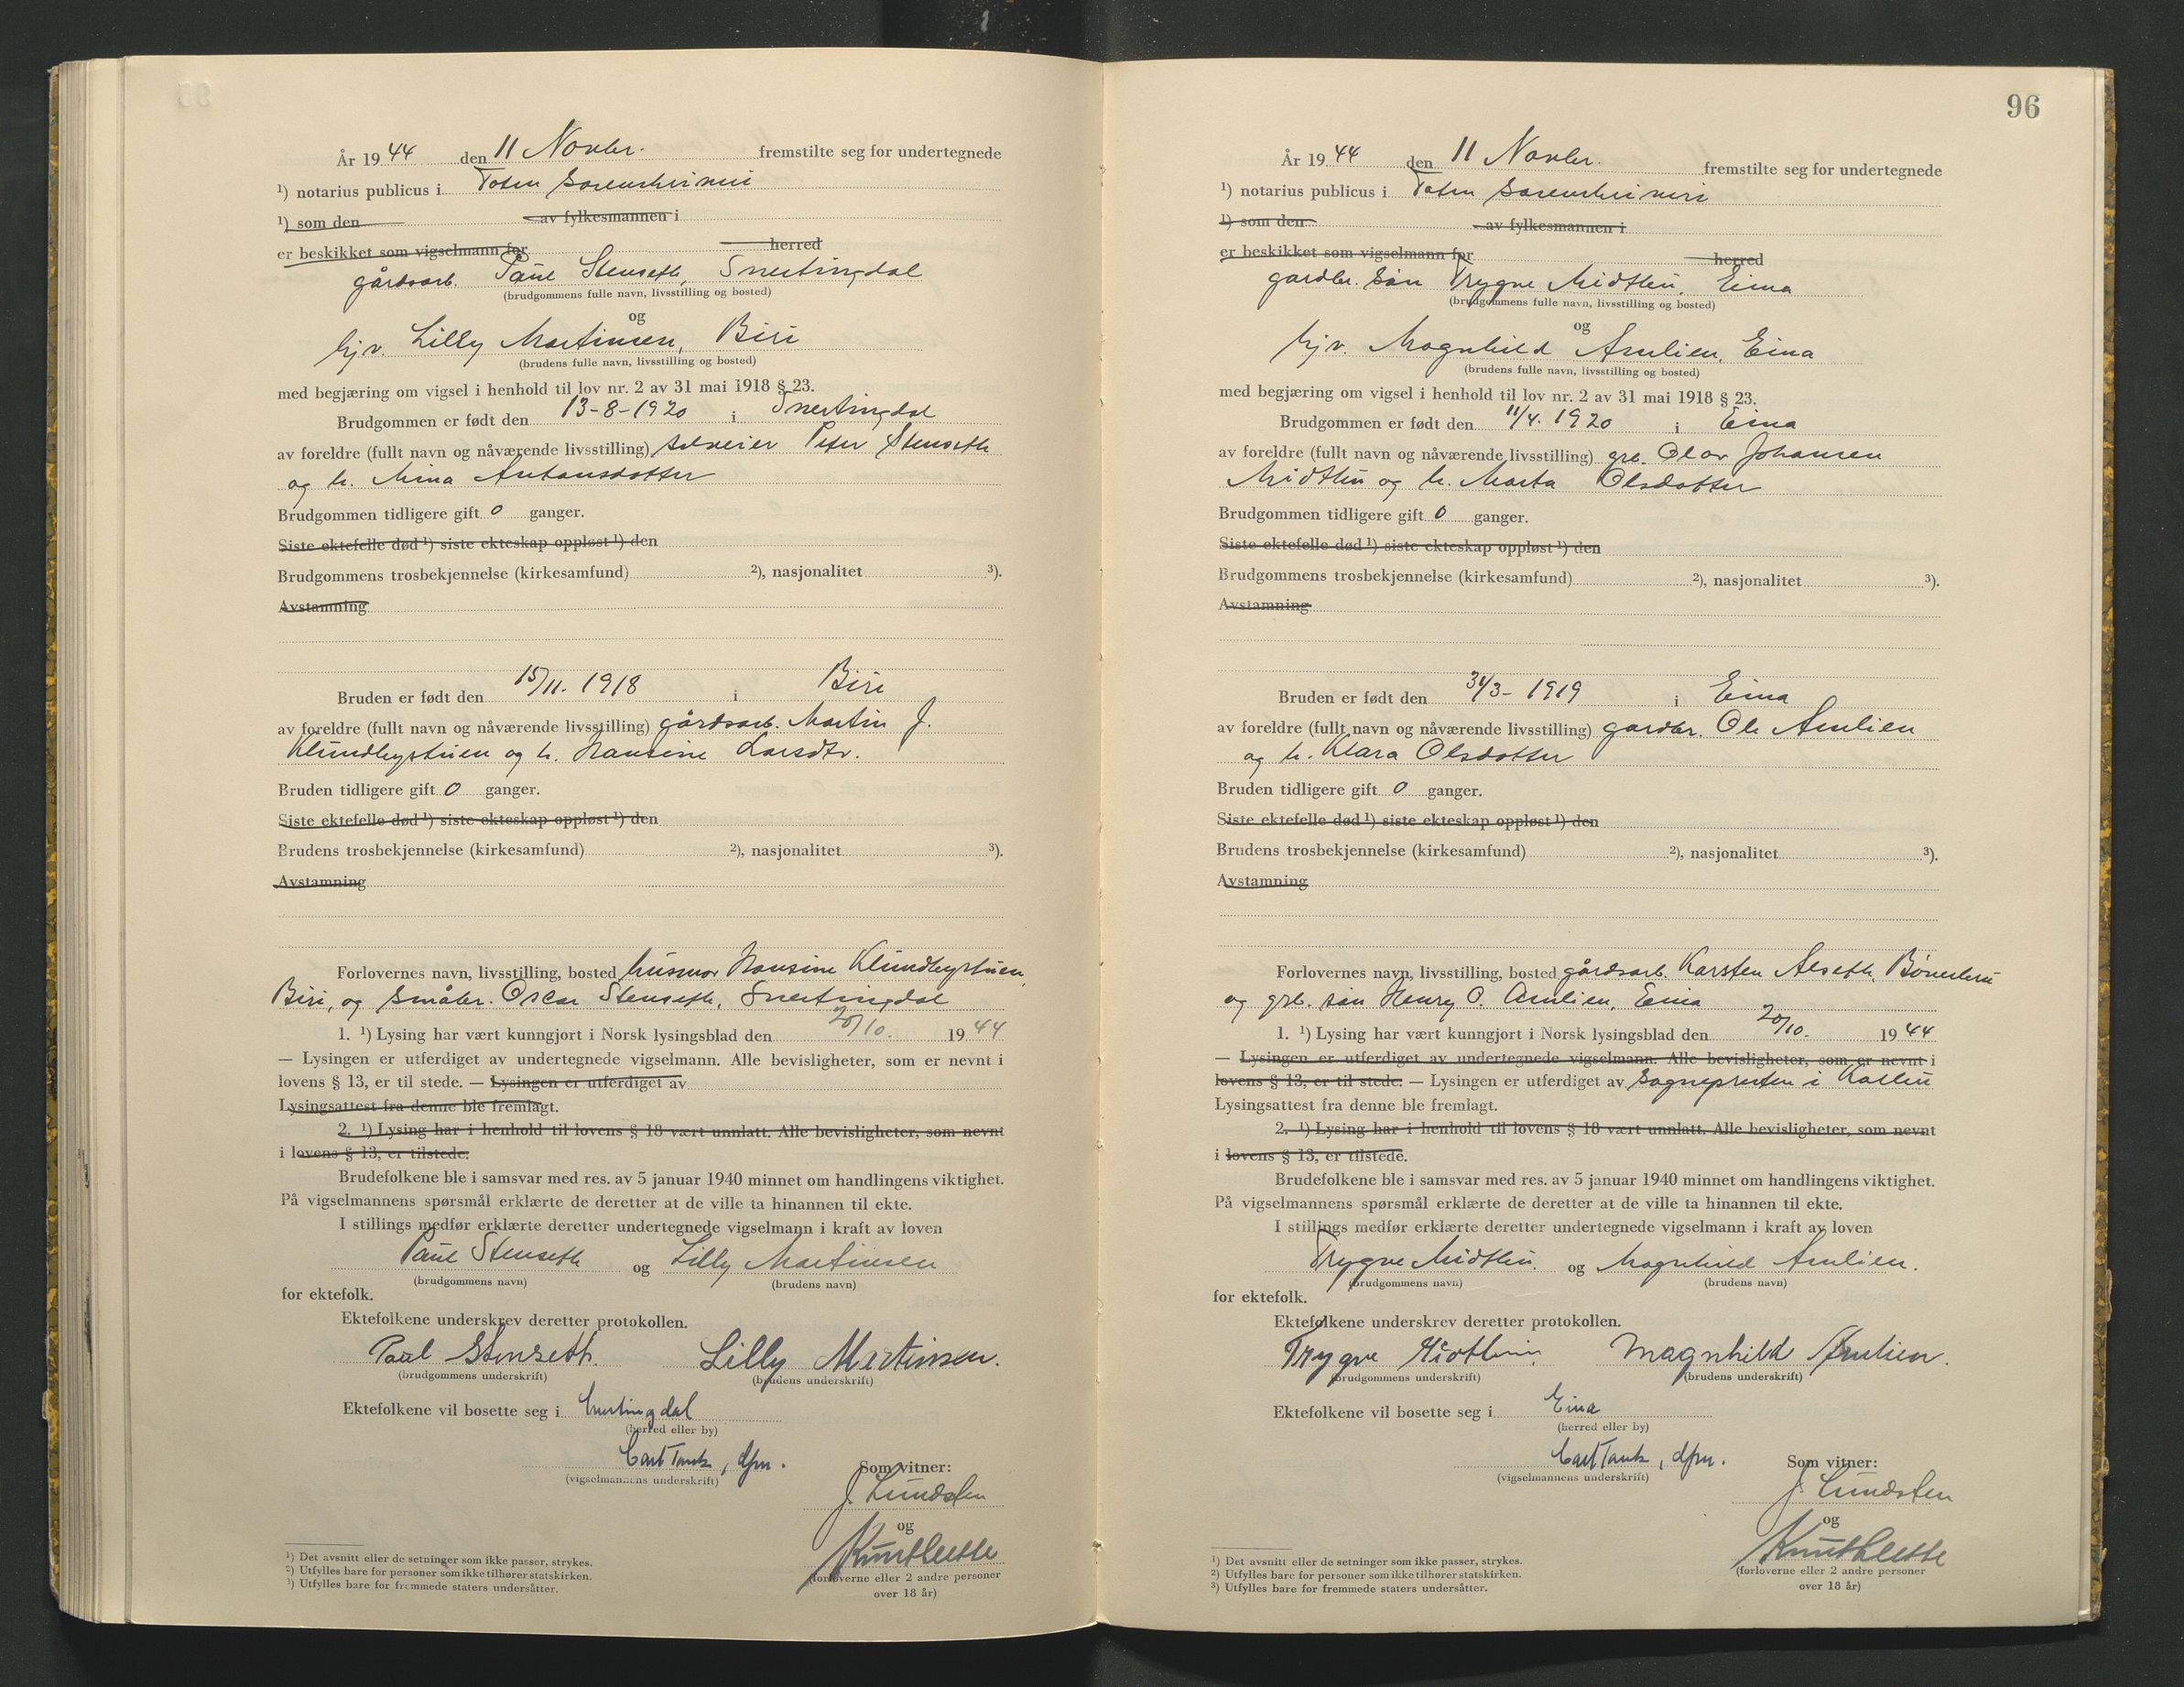 År 1944 den 11 Novbr. fremstilte seg for undertegnede
¹) notarius publicus i Toten sorenskriveri
¹) som den av fylkesmannen i
er beskikket som vigselmann for herred
gårdsarb. Paul Stenseth, Snertingdal
(brudgommens fulle navn, livsstilling og bosted)
og
hjv. Lilly Martinsen, Biri
(brudens fulle navn, livsstilling og bosted)
med begjæring om vigsel i henhold til lov nr. 2 av 31 mai 1918 § 23.
Brudgommen er født den 13-8-1920 i Snertingdal
av foreldre (fullt navn og nåværende livsstilling) selveier Peter Stenseth
og h. Mina Antonsdotter
Brudgommen tidligere gift 0 ganger.
Siste ektefelle død ¹) siste ekteskap oppløst ¹) den
Brudgommens trosbekjennelse (kirkesamfund) ²), nasjonalitet ³).
Avstamning
Bruden er født den 15/11. 1918 i Biri
av foreldre (fullt navn og nåværende livsstilling) gårdsarb. Martin J.
Klundbystuen og h. Hansine Larsdtr.
Bruden tidligere gift 0 ganger.
Siste ektefelle død ¹) siste ekteskap oppløst ¹) den
Brudens trosbekjennelse (kirkesamfund) ²), nasjonalitet ³).
Avstamning
Forlovernes navn, livsstilling, bosted husmor Hansine Klundbystuen,
Biri, og småbr. Oscar Stenseth, Snertingdal
1. ¹) Lysing har vært kunngjort i Norsk lysingsblad den 20/10. 1944
— Lysingen er utferdiget av undertegnede vigselmann. Alle bevisligheter, som er nevnt i
lovens § 13, er til stede. — Lysingen er utferdiget av
Lysingsattest fra denne ble fremlagt.
2. ¹) Lysing har i henhold til lovens § 18 vært unnlatt. Alle bevisligheter, som nevnt
i lovens § 13, er tilstede.
Brudefolkene ble i samsvar med res. av 5 januar 1940 minnet om handlingens viktighet.
På vigselmannens spørsmål erklærte de deretter at de ville ta hinannen til ekte.
I stillings medfør erklærte deretter undertegnede vigselmann i kraft av loven
Paul Stenseth og Lilly Martinsen
(brudgommens navn) (brudens navn)
for ektefolk.
Ektefolkene underskrev deretter protokollen.
Paul Stenseth. Lilly Martinsen.
(brudgommens underskrift) (brudens underskrift)
Ektefolkene vil bosette seg i Snertingdal
(herred eller by)
Carl Tank, dfm.
(vigselmannens underskrift) Som vitner:
J. Lundsten
og
(forloverne eller 2 andre personer
over 18 år)
¹) Det avsnitt eller de setninger som ikke passer, strykes.
²) Utfylles bare for personer som ikke tilhører statskirken.
³) Utfylles bare for fremmede staters undersåtter.
96
År 1944 den 11 Novbr. fremstilte seg for undertegnede
¹) notarius publicus i Toten sorenskriveri
¹) som den av fylkesmannen i
er beskikket som vigselmann for herred
gardbr. søn Trygve Midtlun, Eina
(brudgommens fulle navn, livsstilling og bosted)
og
hjv. Magnhild Amlien, Eina
(brudens fulle navn, livsstilling og bosted)
med begjæring om vigsel i henhold til lov nr. 2 av 31 mai 1918 § 23.
Brudgommen er født den 11/4. 1920 i Eina
av foreldre (fullt navn og nåværende livsstilling) grb. Olav Johansen
Midtlun og h. Marta Olsdotter
Brudgommen tidligere gift 0 ganger.
Siste ektefelle død ¹) siste ekteskap oppløst ¹) den
Brudgommens trosbekjennelse (kirkesamfund) ²), nasjonalitet ³).
Avstamning
Bruden er født den 31/3 - 1919 i Eina
av foreldre (fullt navn og nåværende livsstilling) gardbr. Ole Amlien
og h. Klara Olsdotter
Bruden tidligere gift 0 ganger.
Siste ektefelle død ¹) siste ekteskap oppløst ¹) den
Brudens trosbekjennelse (kirkesamfund) ²), nasjonalitet ³).
Avstamning
Forlovernes navn, livsstilling, bosted gårdsarb. Karsten Alseth
og grb. søn Henry O. Amlien, Eina
1. ¹) Lysing har vært kunngjort i Norsk lysingsblad den 20/10. 1944
— Lysingen er utferdiget av undertegnede vigselmann. Alle bevisligheter, som er nevnt i
lovens § 13, er til stede. — Lysingen er utferdiget av Sognepresten i Kolbu
Lysingsattest fra denne ble fremlagt.
2. ¹) Lysing har i henhold til lovens § 18 vært unnlatt. Alle bevisligheter, som nevnt
i lovens § 13, er tilstede.
Brudefolkene ble i samsvar med res. av 5 januar 1940 minnet om handlingens viktighet.
På vigselmannens spørsmål erklærte de deretter at de ville ta hinannen til ekte.
I stillings medfør erklærte deretter undertegnede vigselmann i kraft av loven
Trygve Midtlun. og Magnhild Amlien.
(brudgommens navn) (brudens navn)
for ektefolk.
Ektefolkene underskrev deretter protokollen.
Trygve Midtlun. Magnhild Amlien.
(brudgommens underskrift) (brudens underskrift)
Ektefolkene vil bosette seg i Eina
(herred eller by)
Carl Tank, dfm.
(vigselmannens underskrift) Som vitner:
J. Lundsten
og
(forloverne eller 2 andre personer
over 18 år)
¹) Det avsnitt eller de setninger som ikke passer, strykes.
²) Utfylles bare for personer som ikke tilhører statskirken.
³) Utfylles bare for fremmede staters undersåtter.